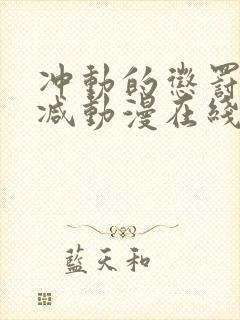 冲動的懲罰
减動漫在綫
藍天和